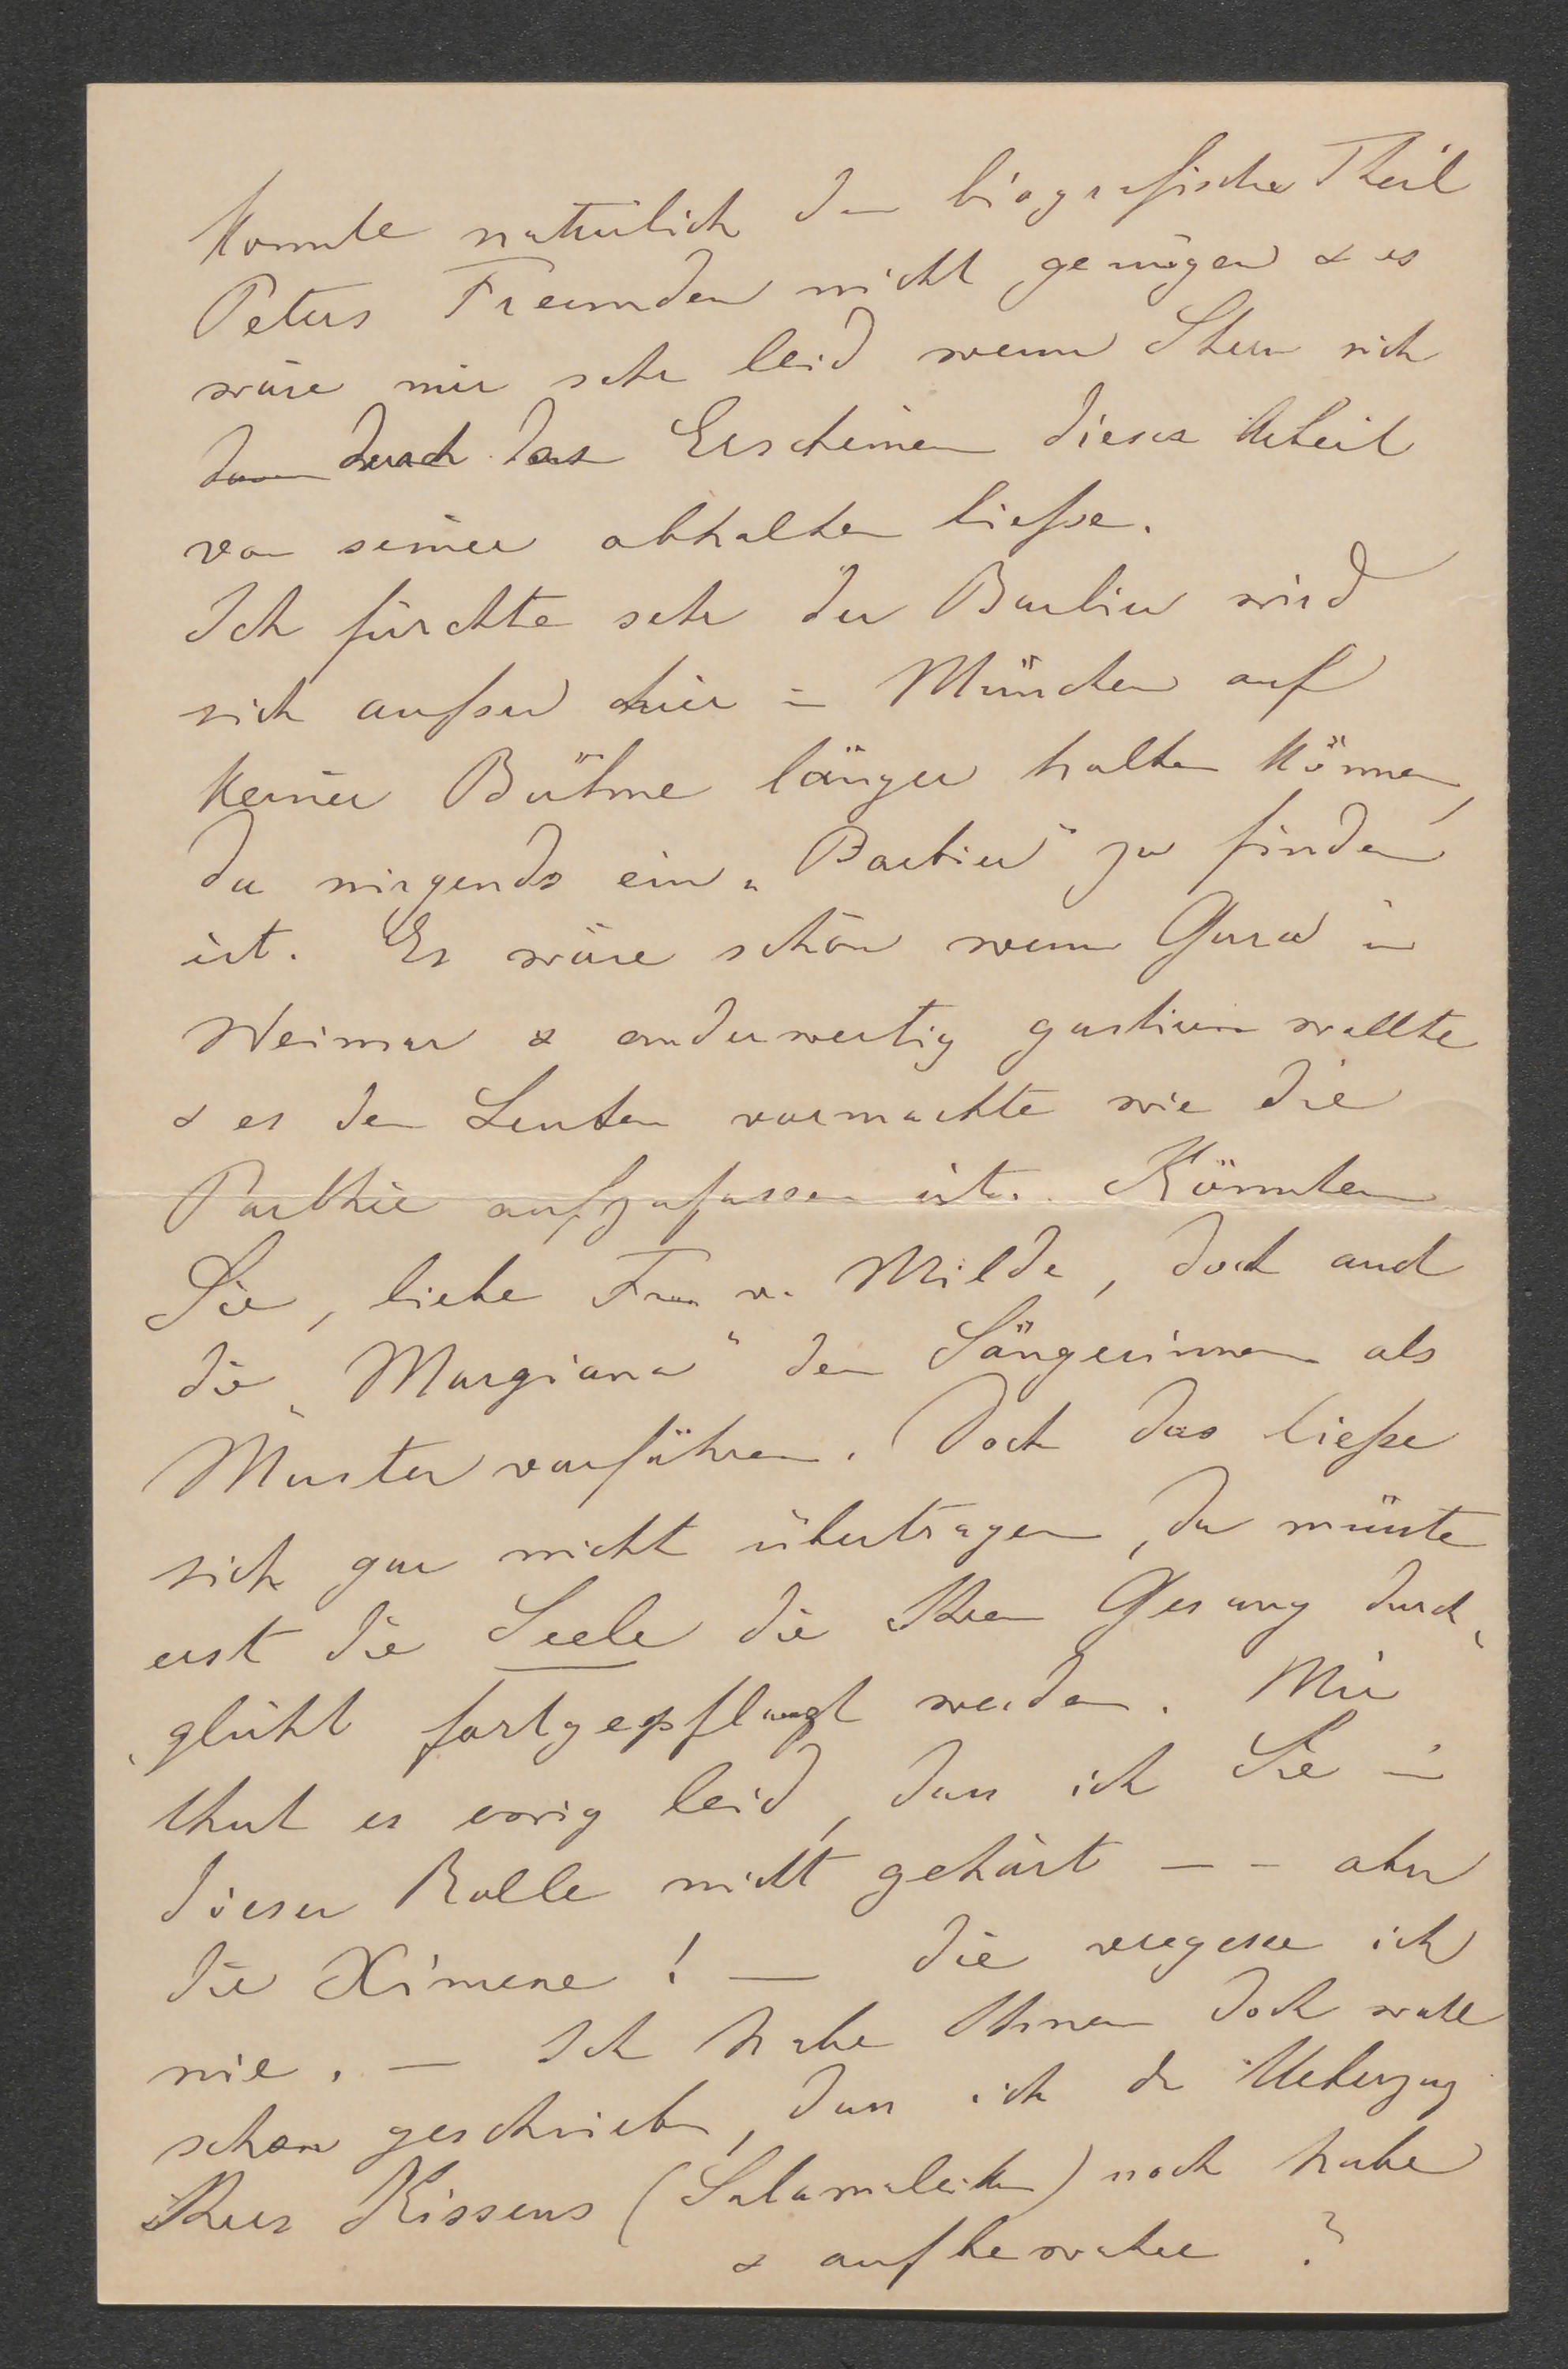 konnte natürlich den biografische Theil
Peters Freunden nicht genügen & es
wäre mir sehr leid wenn Stern sich
durch das Erscheinen dieser Arbeit
von seiner abhalten ließe.
Ich fürchte sehr der Barbier wird
sich außer hier in München auf
keiner Bühne länger halten können,
da nirgends ein „Barbier" zu finden
ist. Es wäre schön wenn Gura in
Weimar & anderwertig gastiren wollte
& es den Leuten vormachte wie die
Parthie aufzufassen ist. Könnten
Sie, liebe Frau v. Milde, doch auch
die „Margiana" den Sängerinnen als
Muster vorführen. Doch das ließe
sich gar nicht übertragen, da müsste
erst die Seele die Ihren Gesang durch-
glüht fortgepflanzt werden. Mir
thut es ewig leid, dass ich Sie in
dieser Rolle nicht gehört — — aber
die Ximene! — die vergesse ich
nie. — Ich habe Ihnen doch wohl
schon geschrieben, dass ich den Ueberzug
Ihres Kissens (Salamaleikum) noch habe
& aufbewahre?